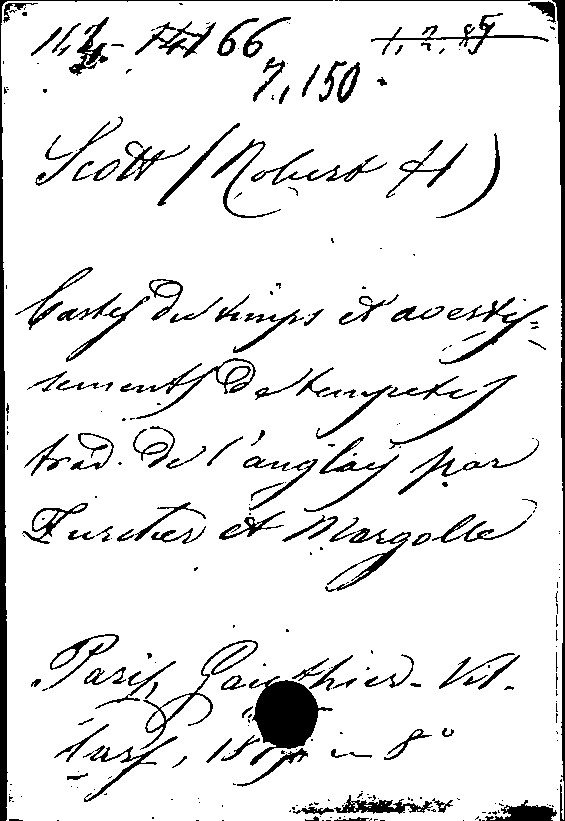 66 1, 2, 85
7,150.
Scott (Robert H)
Cartes du temps et avertis=
sements de tempetes
trad. de l'anglais par
Zurcher et Margolle
Paris, Gauthier-Vil-
lars, in 8°